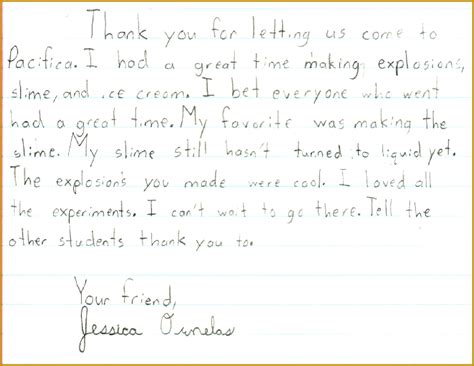 Thank you for letting us come to
Pacifica. I had a great time making explosions,
slime, and ice cream. I bet everyone who went
had a great time. My favorite was making the
slime. My slime still hasn't turned to liquid yet.
The explosions you made were cool. I loved all
the experiments. I can't wait to go there. Tell the
other students thank you to.
Your friend,
Jessica Ornelas